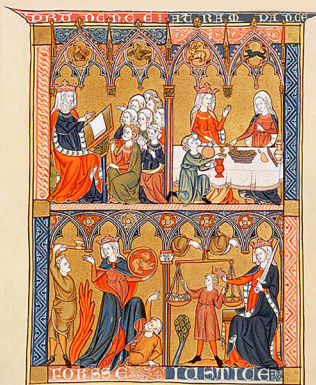 PRUDENCE : ATRAMPANCE
FORSSE IUSTICE